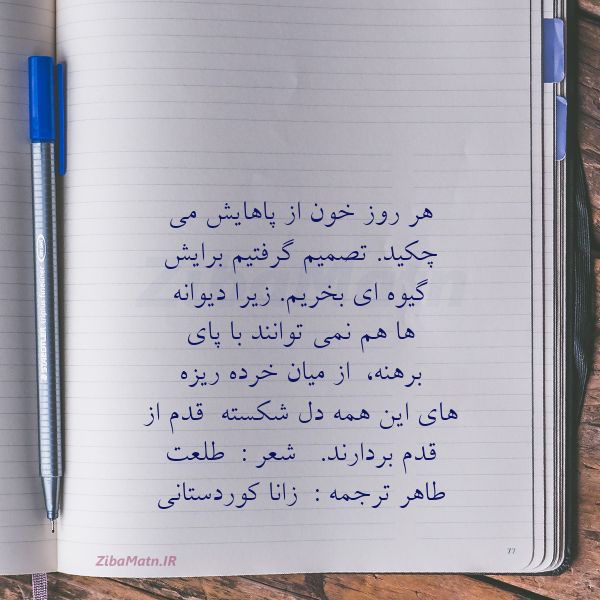 هر روز خون از پاهایش می
چکید. تصمیم گرفتیم برایش
گیوه ای بخریم. زیرا دیوانه
ها هم نمی توانند با پای
برهنه، از میان خرده ریزه
های این همه دل شکسته قدم از
قدم بردارند. شعر : طلعت
طاهر ترجمه : زانا کوردستانی
ZibaMatn.IR